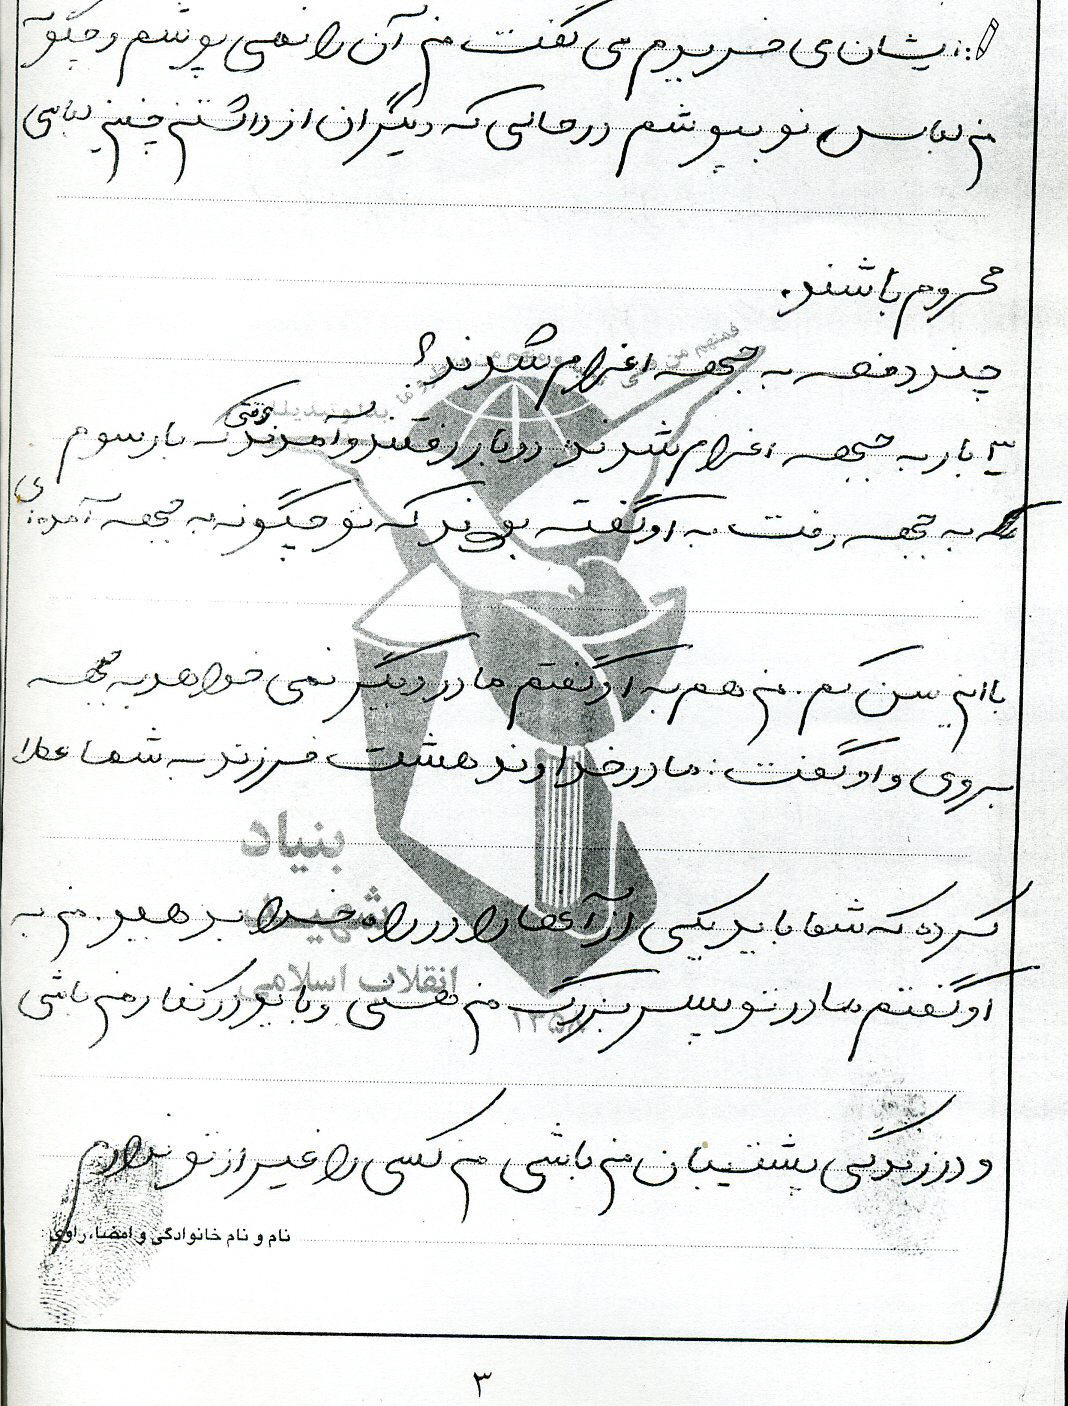 ایشان می خریدم می گفت من آن را نمی پوشم و چگونه
من لباس نو بپوشم در حالی که دیگران از داشتن چنین لباسی
محروم باشند.
چند دفعه به جبهه اعزام شدند؟
۳ بار به جبهه اعزام شدند دو بار رفتند و آمدند وقتی که بار سوم
به جبهه رفت به او گفته بودند که تو چگونه به جبهه آمده ای
با این سن کم. من هم به او گفتم مادر دیگر نمی خواهد به جبهه
بروی و او گفت: مادر خداوند هشت فرزند به شما عطا
کرده که شما باید یکی از آنها را در راه خدا بدهید. من به
او گفتم مادر تو پسر بزرگ من هستی و باید در کنار من باشی
و در زندگی پشتیبان من باشی من کسی را غیر از تو ندارم
نام و نام خانوادگی و امضاء راوی
بنیاد
شهید
انقلاب اسلامی
۱۳۵۸
۳